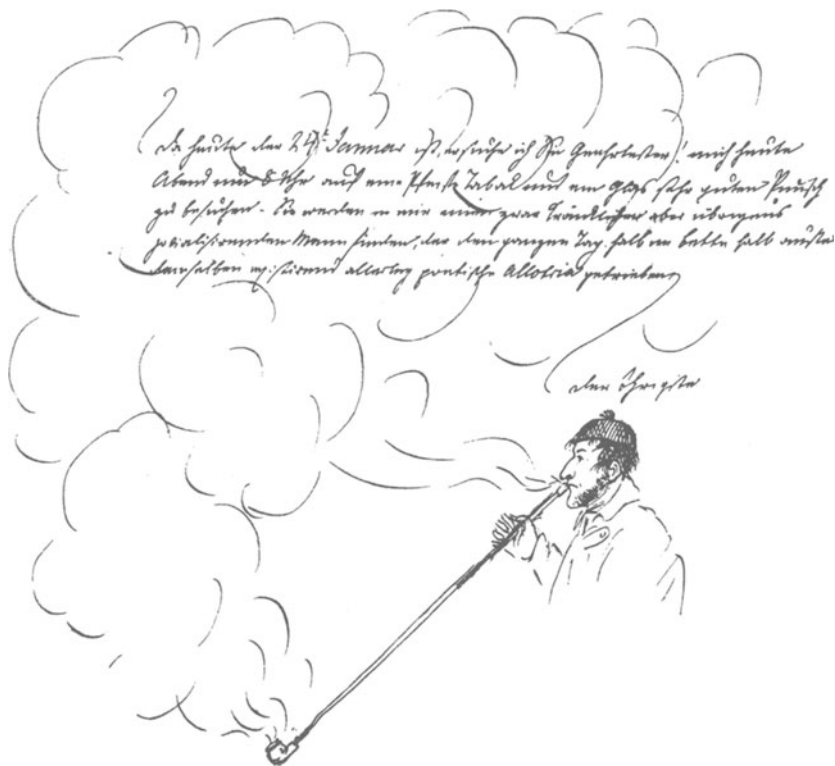 Da heute der 24t Januar ist, ersuche ich Sie Geehrtester! mich heute
Abend um 8 Uhr auf eine Pfeife Tabak und ein Glas sehr guten Punsch
zu besuchen. Sie werden in mir einen zwar kränklichen aber übrigens
jovialisirenden Mann finden, der den ganzen Tag halb im Bette halb außer
demselben existirend allerley poetische Allotria getrieben
der Ihrigste